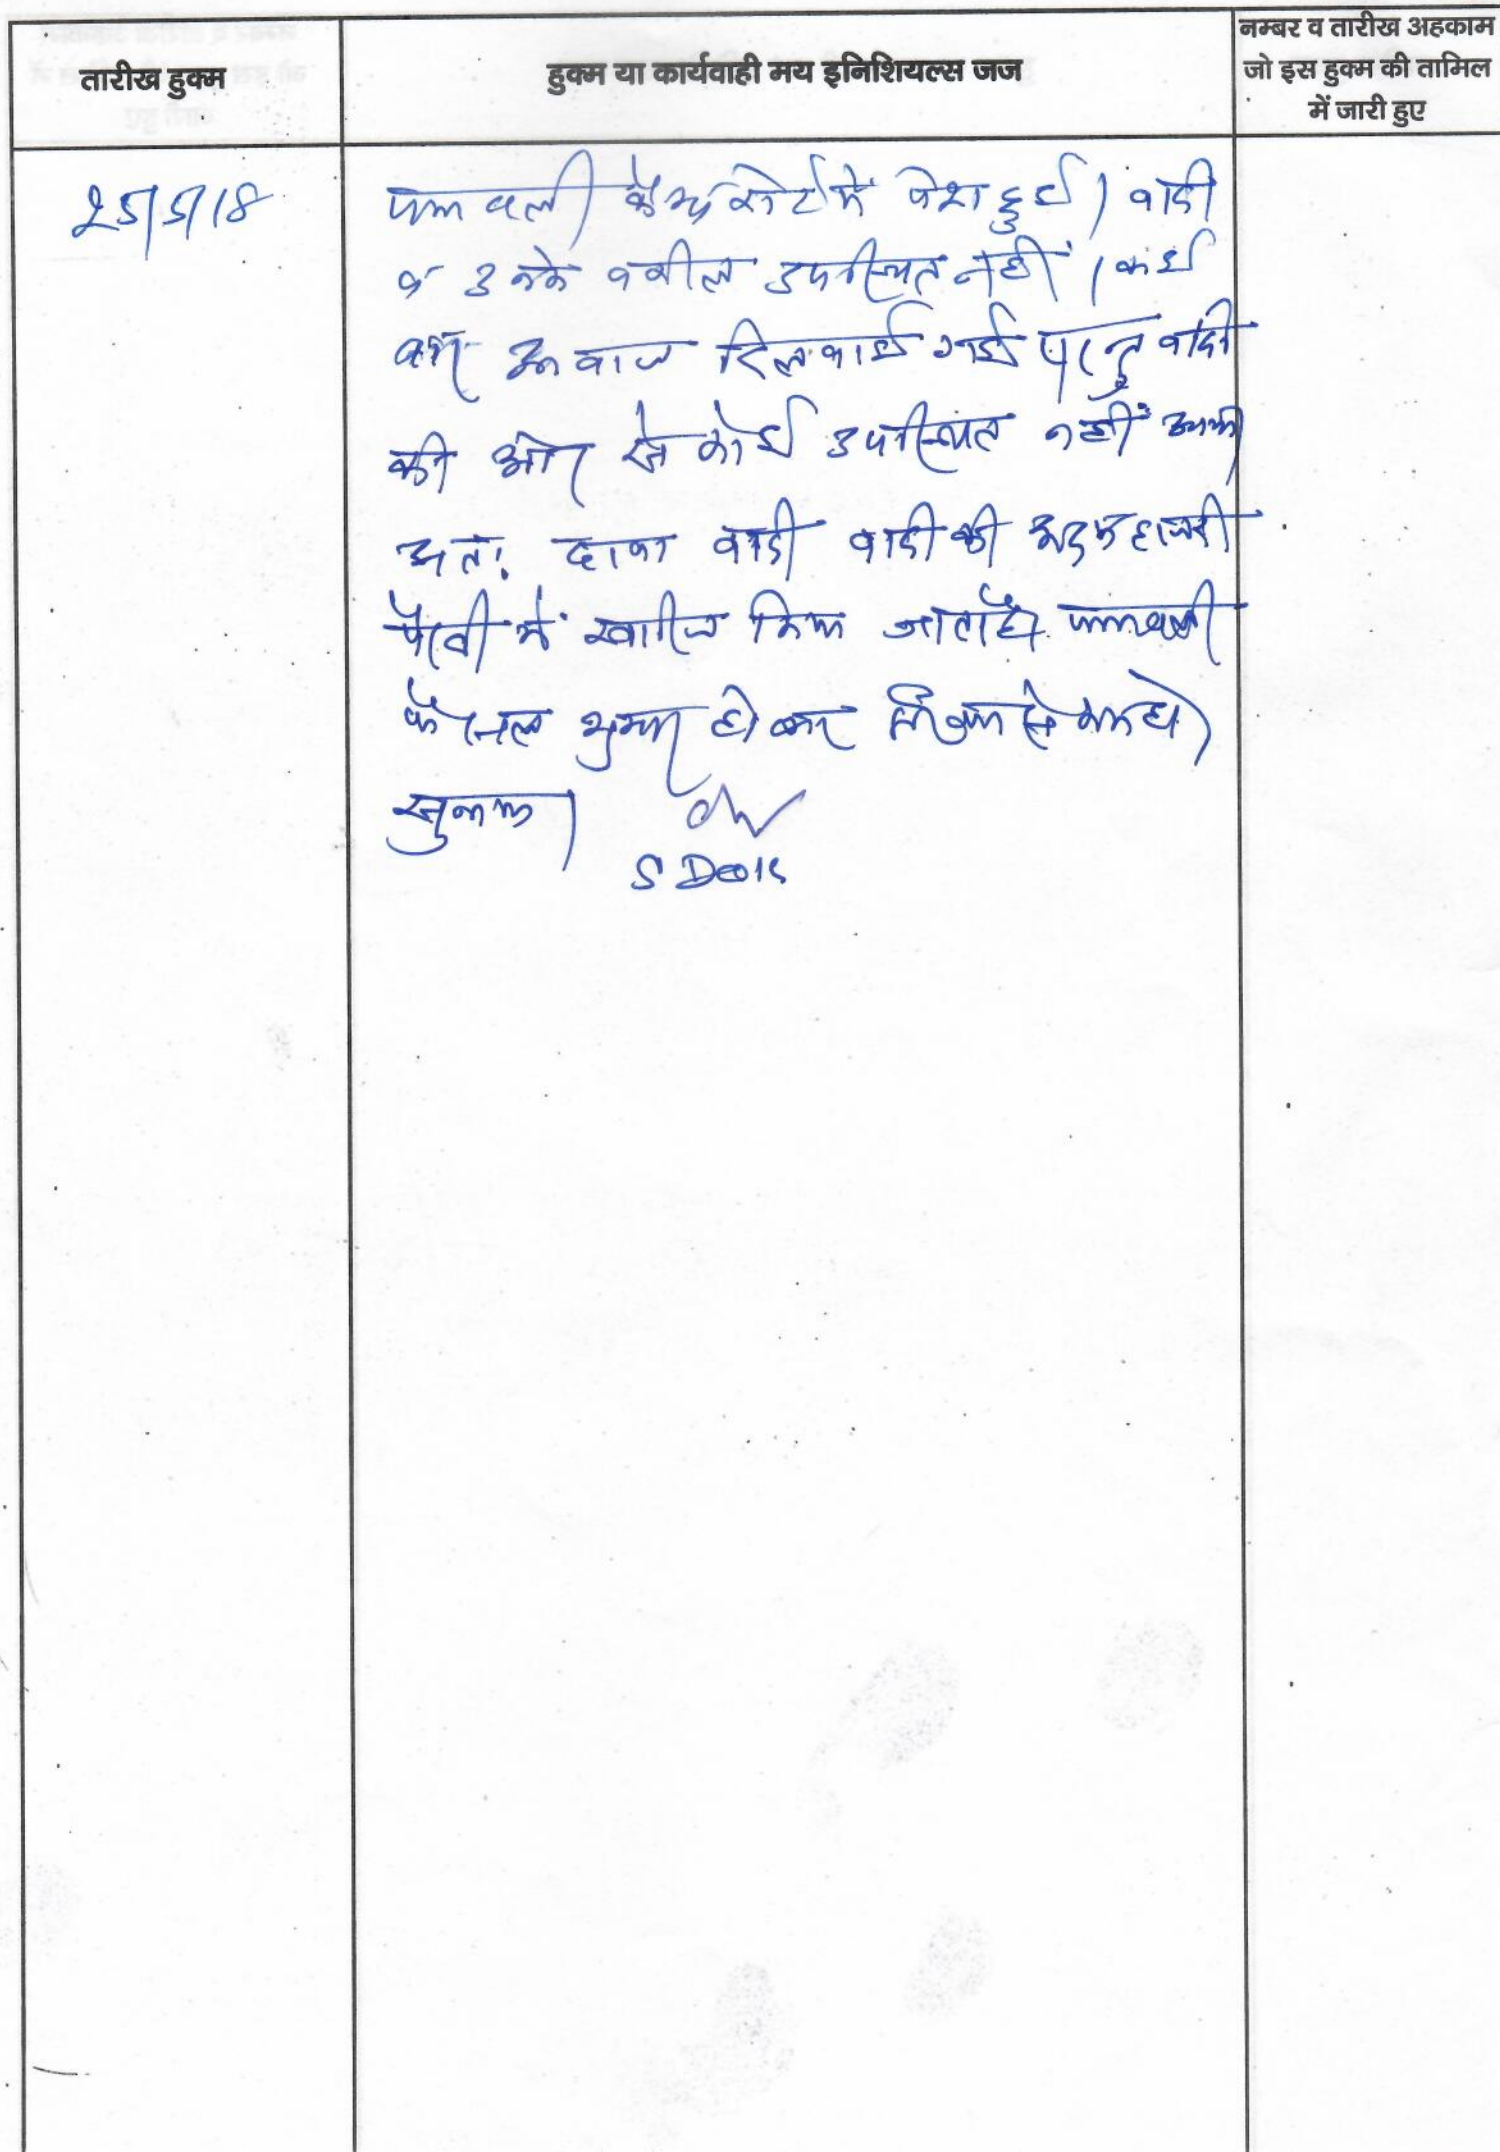 तारीख हुक्म
हुक्म या कार्यवाही मय इनिशियल्स जज
नम्बर व तारीख अहकाम
जो इस हुक्म की तामिल
में जारी हुए
25/5/18
पत्रावली कैम्प कोर्ट में पेश हुई। वादी
व उनके वकील उपस्थित नहीं। कई
बार आवाज दिलवाई गई परन्तु वादी
की ओर से कोई उपस्थित नहीं आया
अतः दावा वादी वादी की अदम हाजरी
पैरवी में खारिज किया जाता है। पत्रावली
फैसल शुमार होकर
सुनाया।